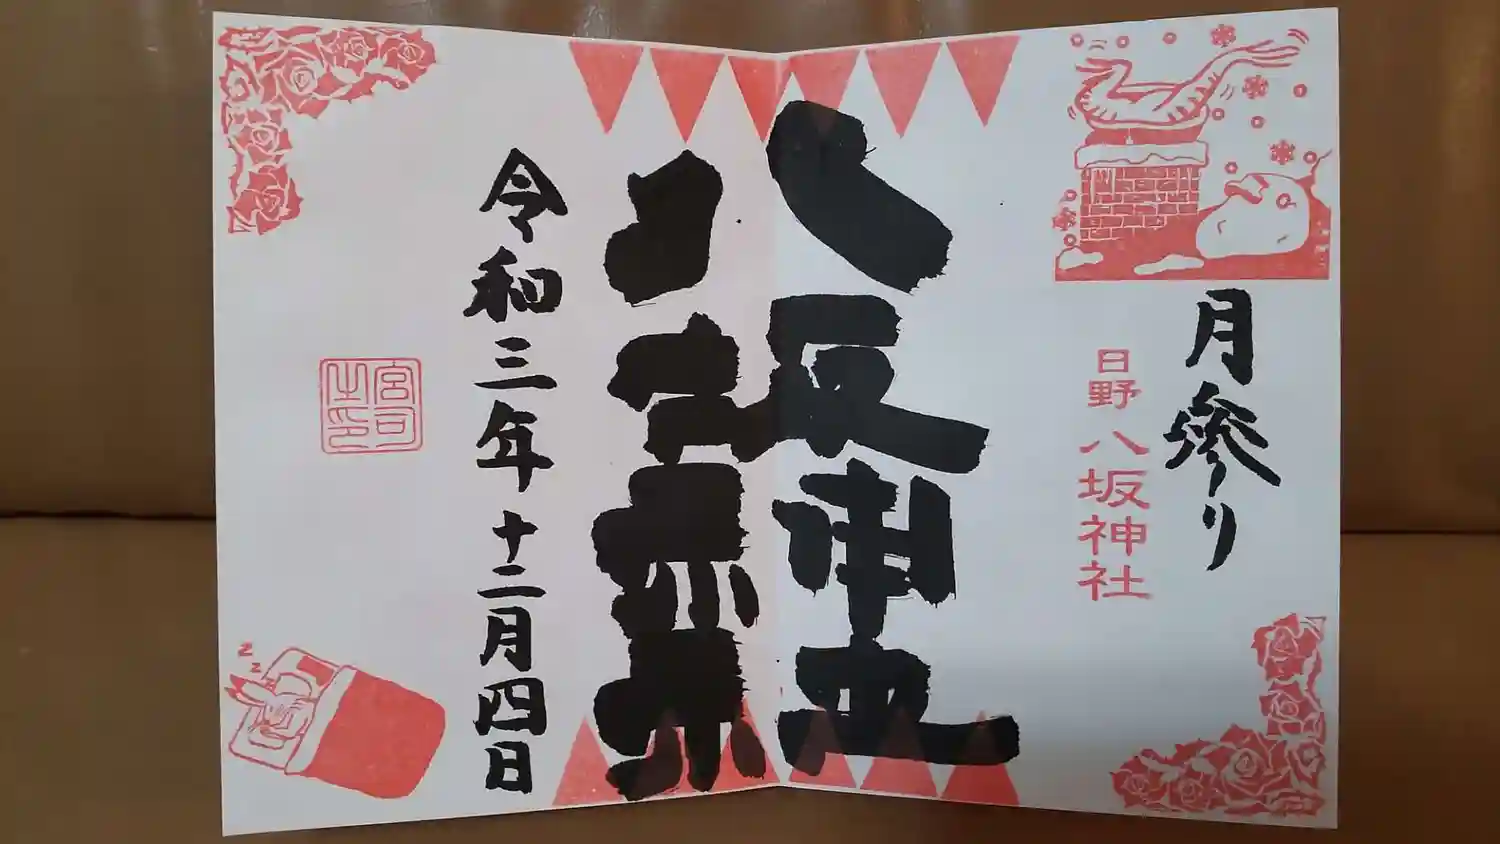 月参り
日野八坂神社
八坂神社
令和三年十二月四日
宮司之印
zzz